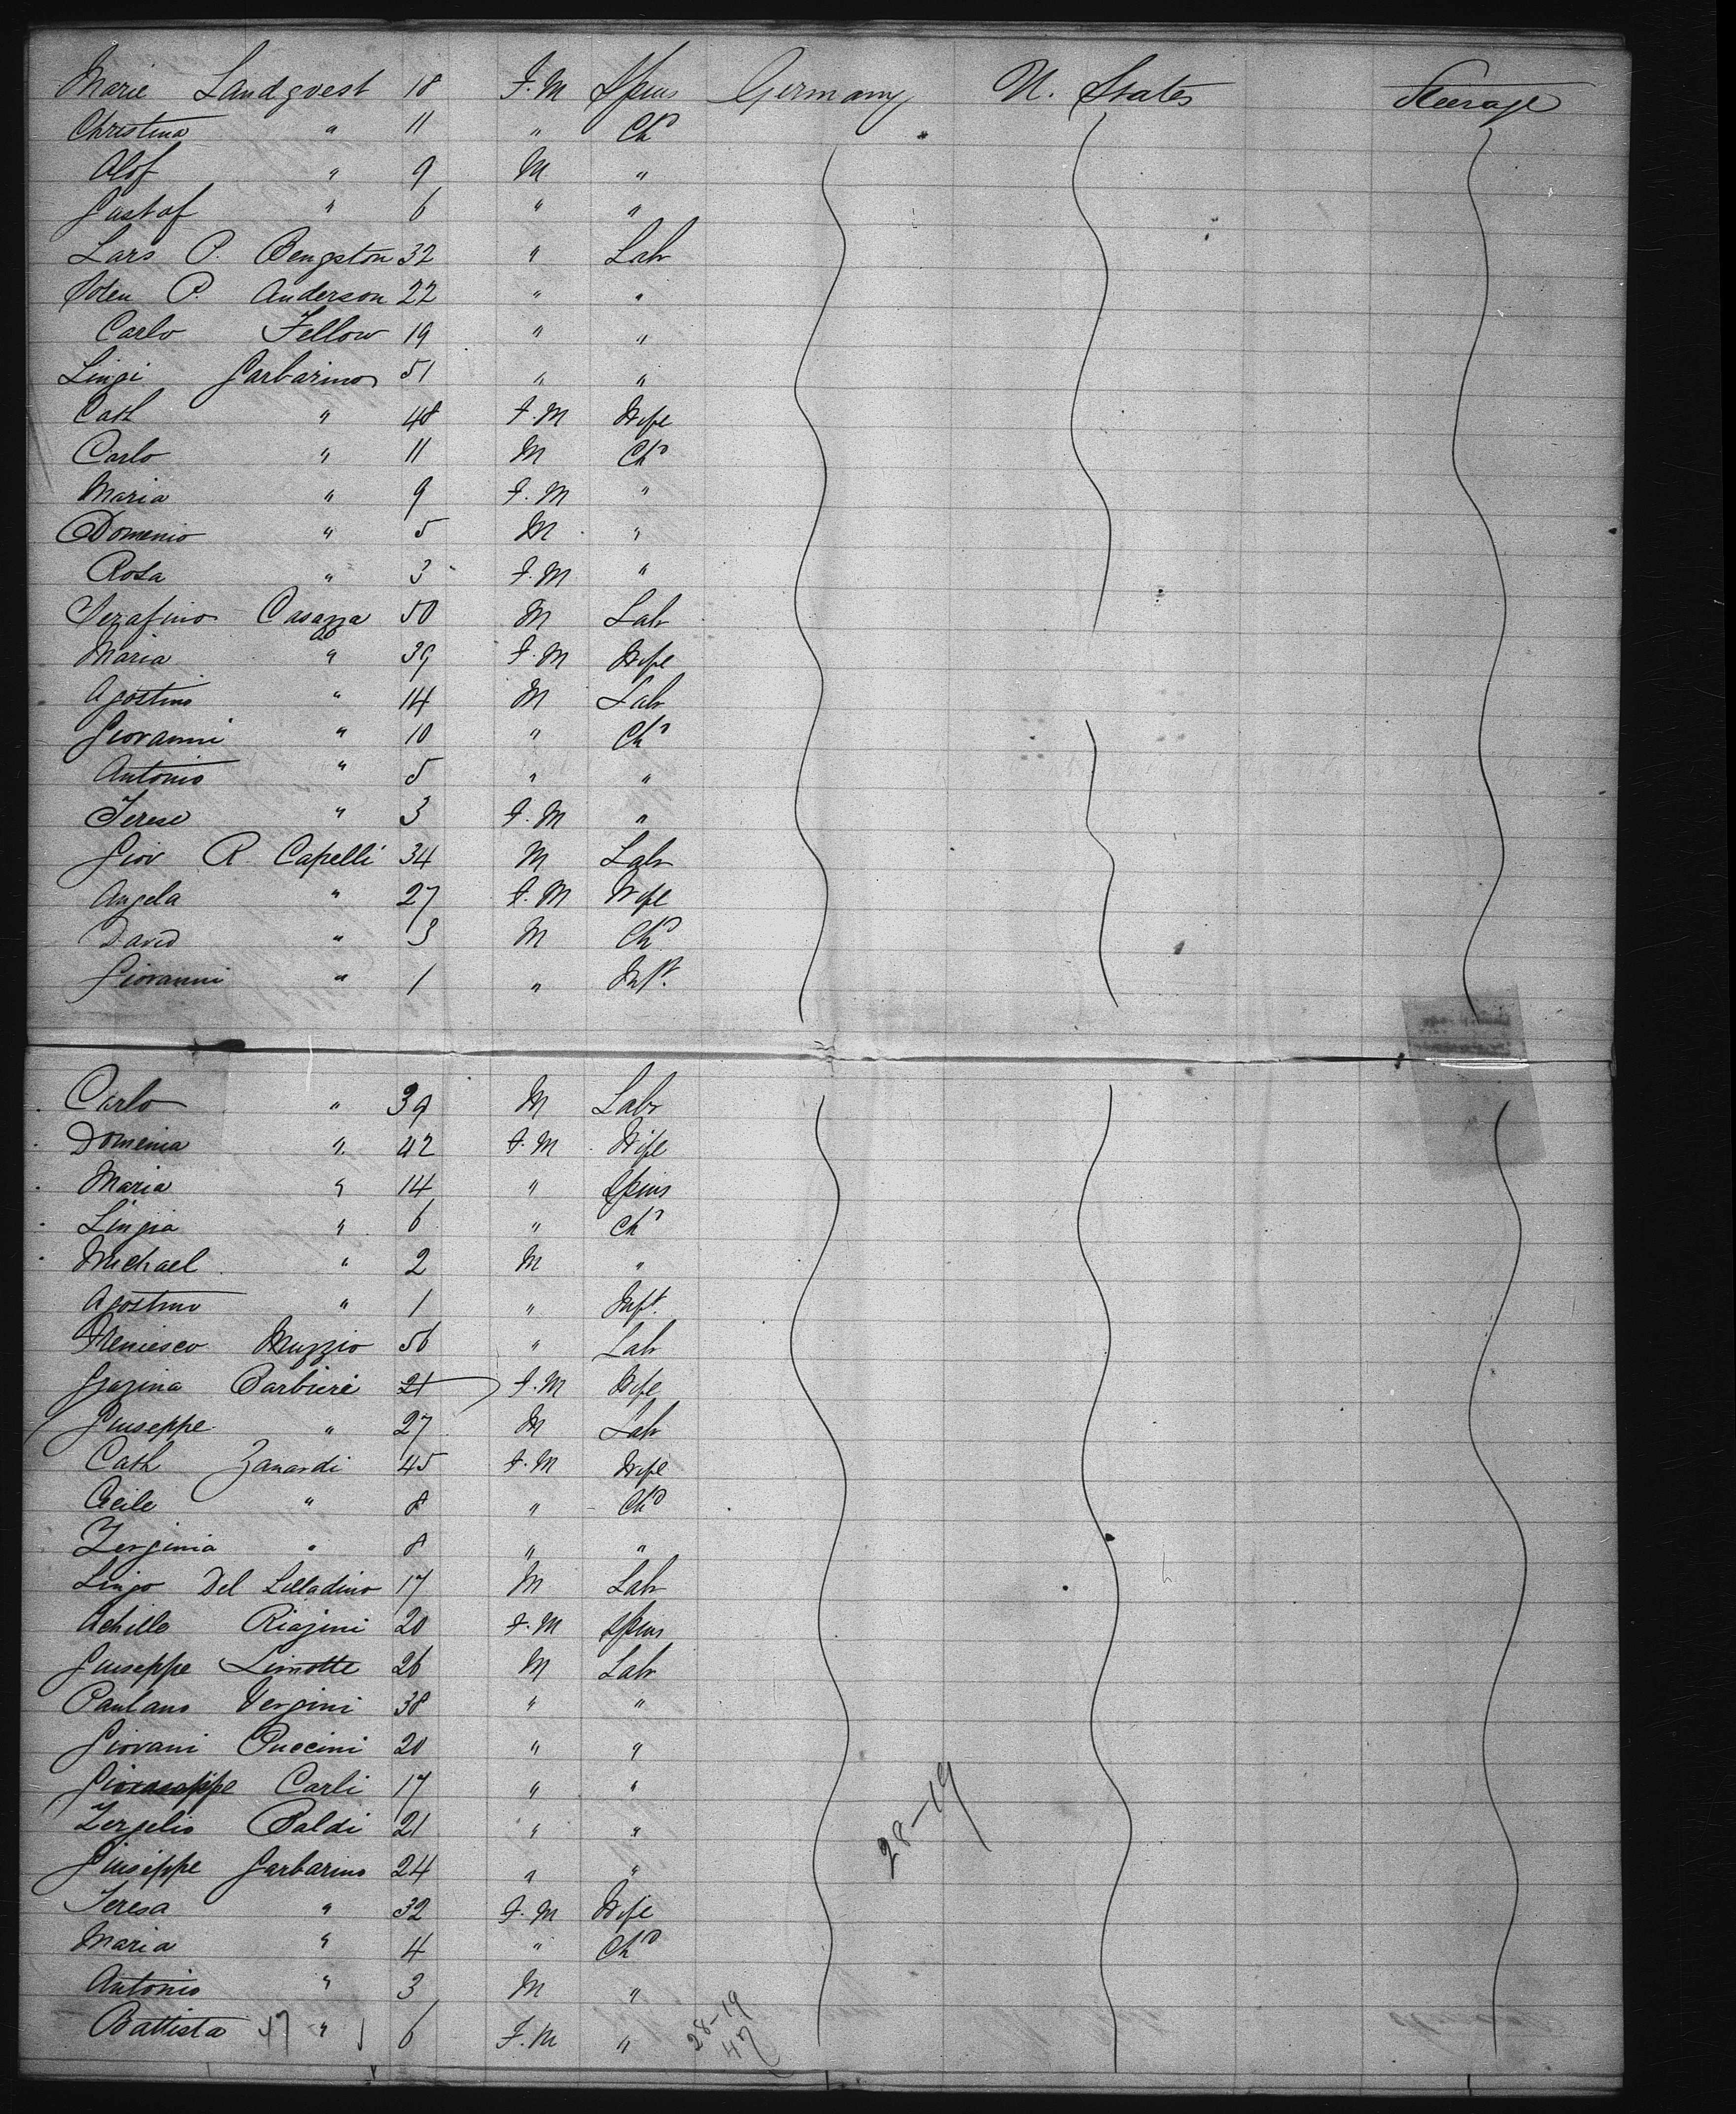 Marie Landqvest 18 F.M Spins Germany U. States Steerage
Christina " 11 " Chd
Olof " 9 M "
Gustaf " 6 " "
Lars P. Bengston 32 " Lab
P. Anderson 22 " "
Carlo Fellow 19 " "
Lingi Garbarino 51 " "
Cath " 48 F.M Wife
Carlo " 11 M Chd
Maria " 9 F.M "
Domenio " 5 M "
Rosa " 3 F.M "
Serafino Casazza 50 M Lab
Maria " 39 F.M Wife
Agostino " 14 M Lab
Giovanni " 10 " Chd
Antonio " 5 " "
Terese " 3 F.M "
Giov R. Capelli 34 M Lab
Angela " 27 F.M Wife
David " 3 M Chd
Giovanni " 1 " Inft.
Carlo " 39 M Labr
Domenia " 42 F.M Wife
Maria " 14 " Spins
Lingia " 6 " Chd
Michael " 2 M "
Agostino " 1 " Inft.
Muzzio 56 " Lab
Barbieri 21 F.M Wife
Giuseppe " 27 M Lab
Cath Zanardi 45 F.M Wife
Cecile " 8 " Chd
Zerginia " 8 " "
Lingo Del Lilladino 17 M Lab
Achille Riazini 20 F.M Spins
Giuseppe Limotte 26 M Lab
Paulano Vergini 38 " "
Giovani Puccini 20 " "
Carli 17 " "
Zergelio Baldi 21 " "
Giuseppe Garbarino 24 " "
Teresa " 32 F.M Wife
Maria " 4 " Chd
Antonio " 3 M "
Battista 47 " 6 F.M "
28-19
28-19
47